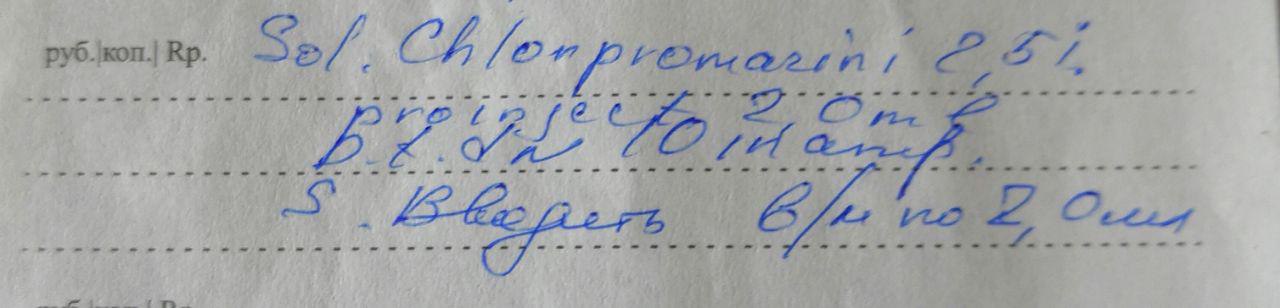 руб.|коп.| Rp. Sol. Chlorpromazini 2,5%
pro inject 2,0 ml
D.t.d N 10 in amp.
S. Вводить в/м по 2,0 мл